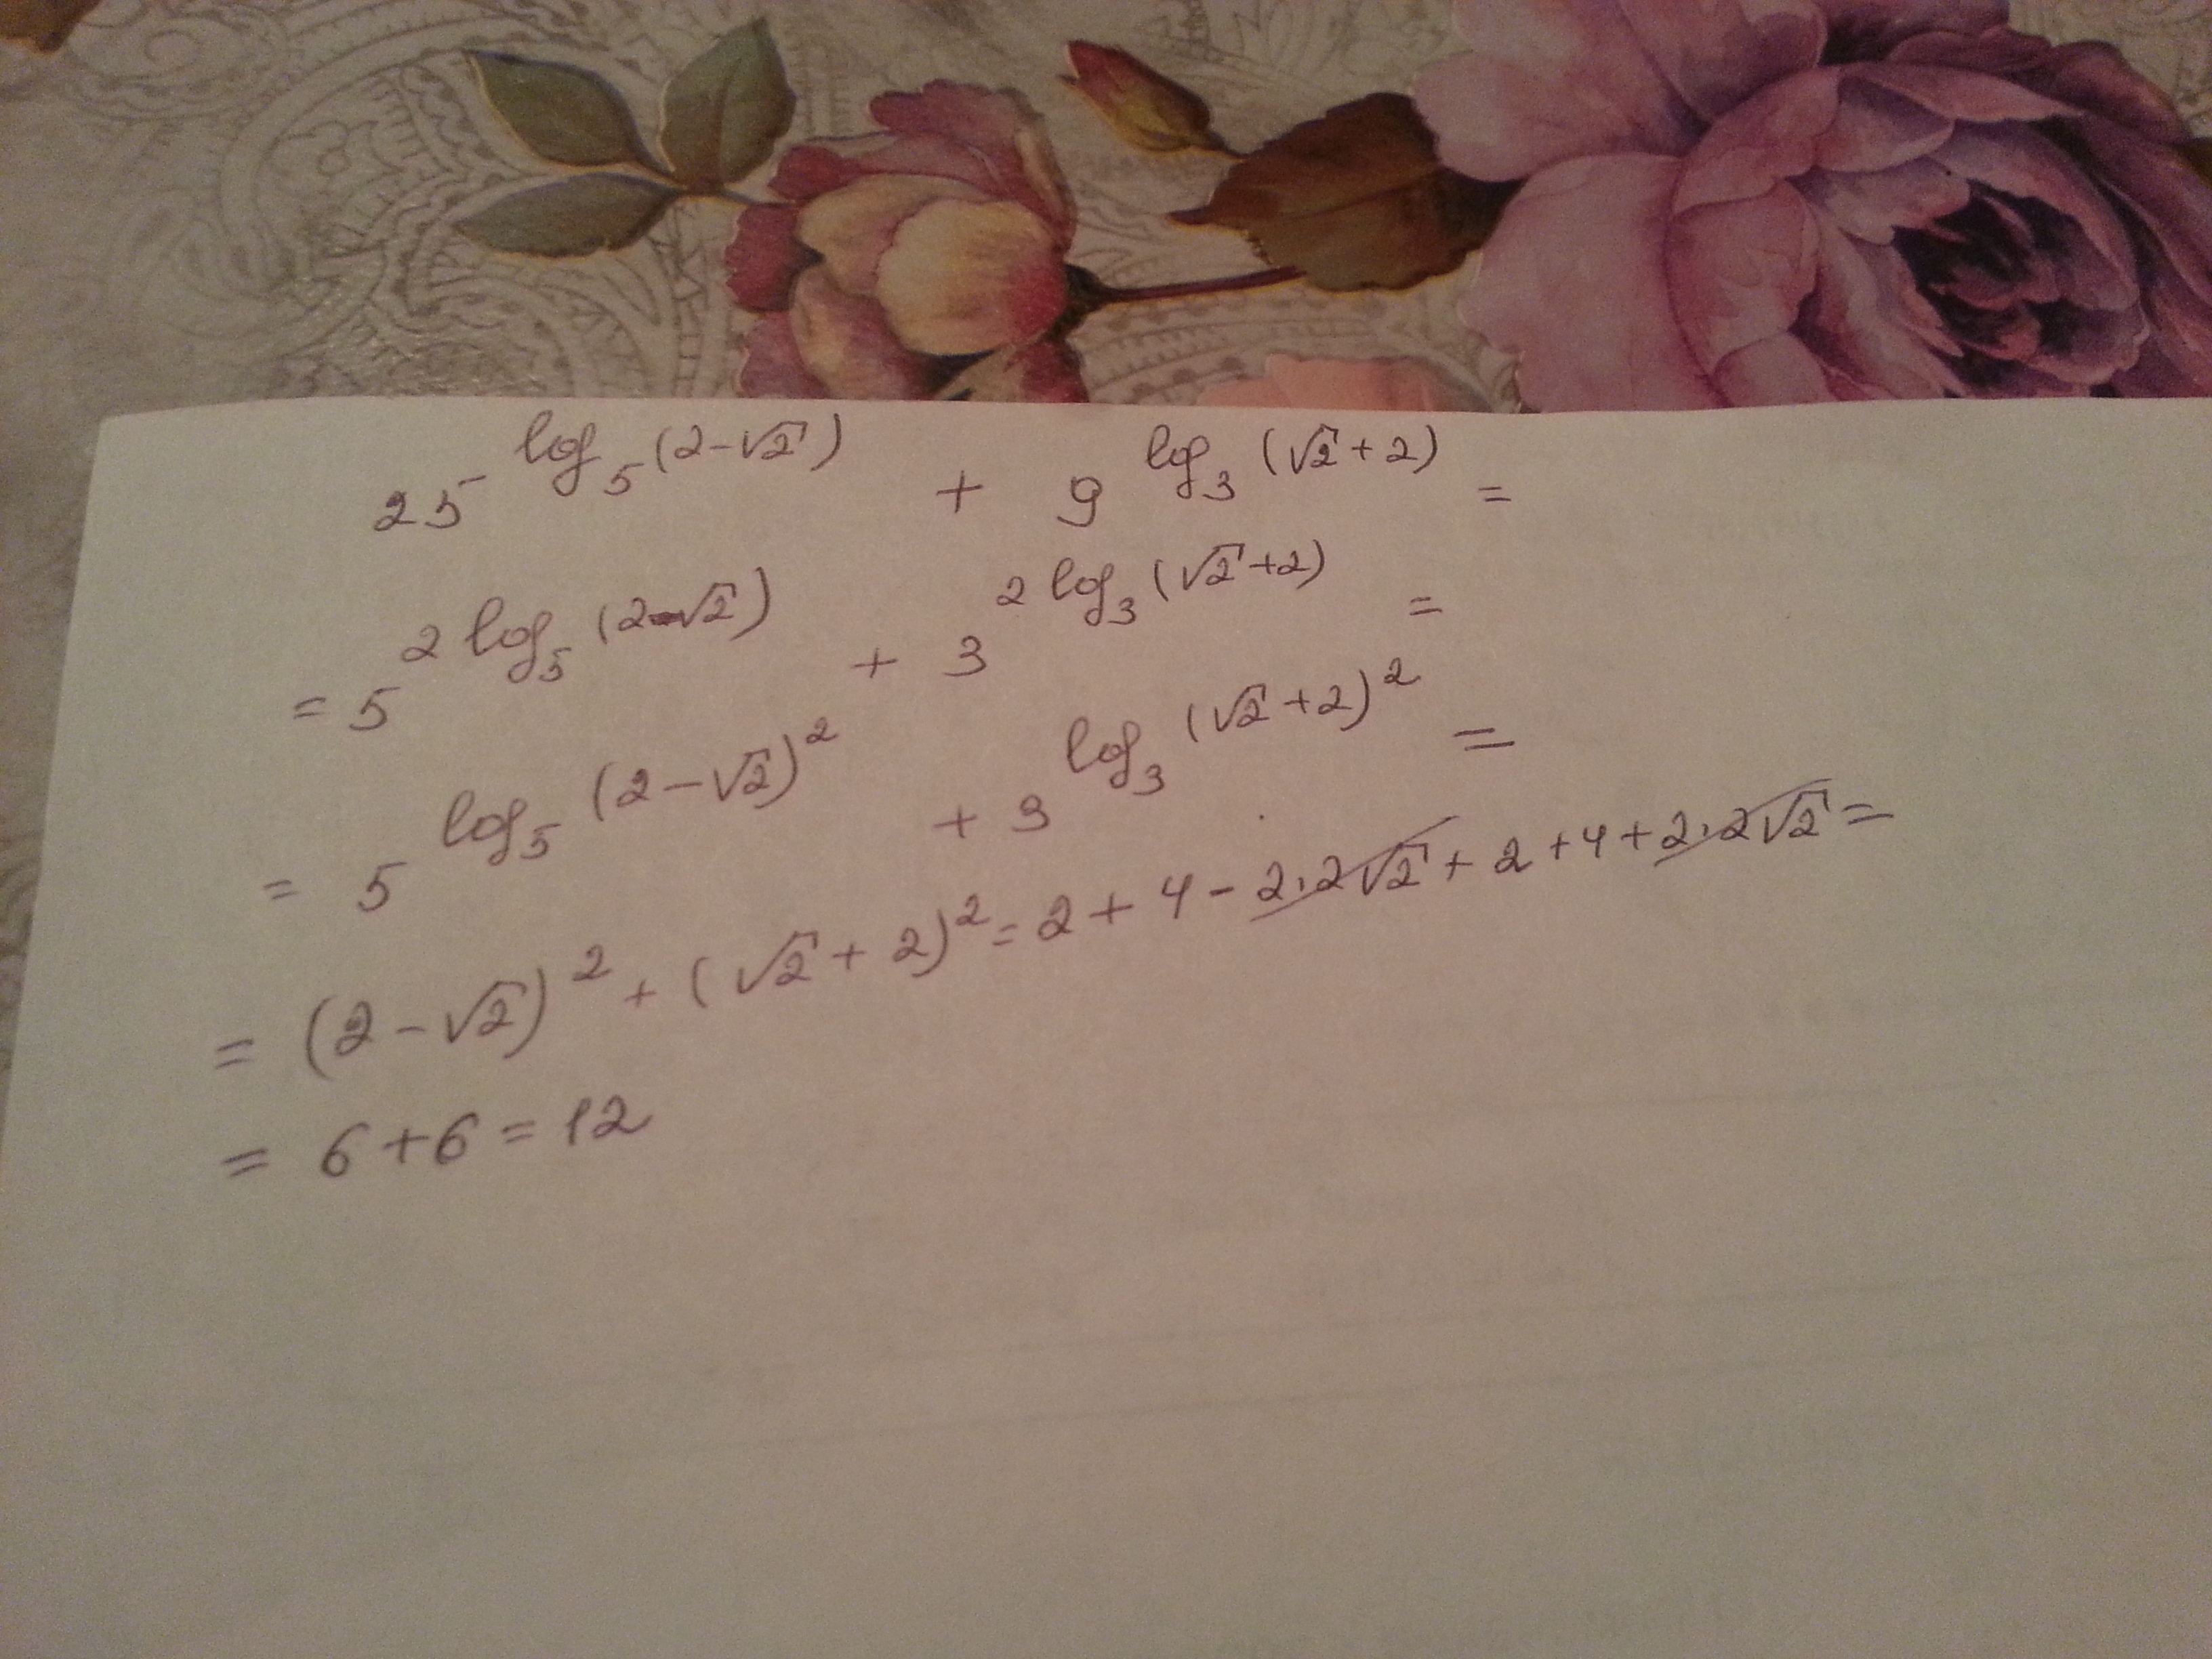 25^{log_5(2-√2)} + 9^{log_3(√2+2)} =
= 5^{2log_5(2-√2)} + 3^{2log_3(√2+2)} =
= 5^{log_5(2-√2)^2} + 3^{log_3(√2+2)^2} =
= (2-√2)^2 + (√2+2)^2 = 2+4-2·2√2+2+4+2·2√2 =
= 6+6=12